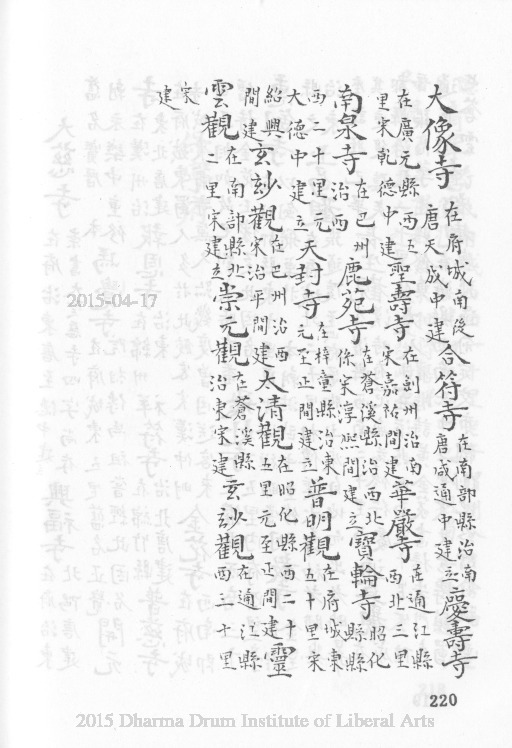 大像寺在府城南後唐天成中建合符寺在南部縣治南唐咸通中建立慶壽寺
在廣元縣西五里宋乾德中建聖壽寺在劍州治南宋嘉祐間建華嚴寺在通江縣西北三里
南泉寺在巴州治西鹿苑寺在蒼溪縣治西北係宋淳熙間建立寶輪寺昭化縣縣
西二十里元大德中建立天封寺在梓童縣治東元至正間建立普明觀在府城東五十里宋
紹興間建玄妙觀在巴州治西宋治平間建太清觀在昭化縣西二十五里元至正間建靈
雲觀在南部縣北二里宋建立崇元觀在蒼溪縣治東宋建玄妙觀在通江縣西三十里
宋建
2015-04-17
220
2015 Dharma Drum Institute of Liberal Arts